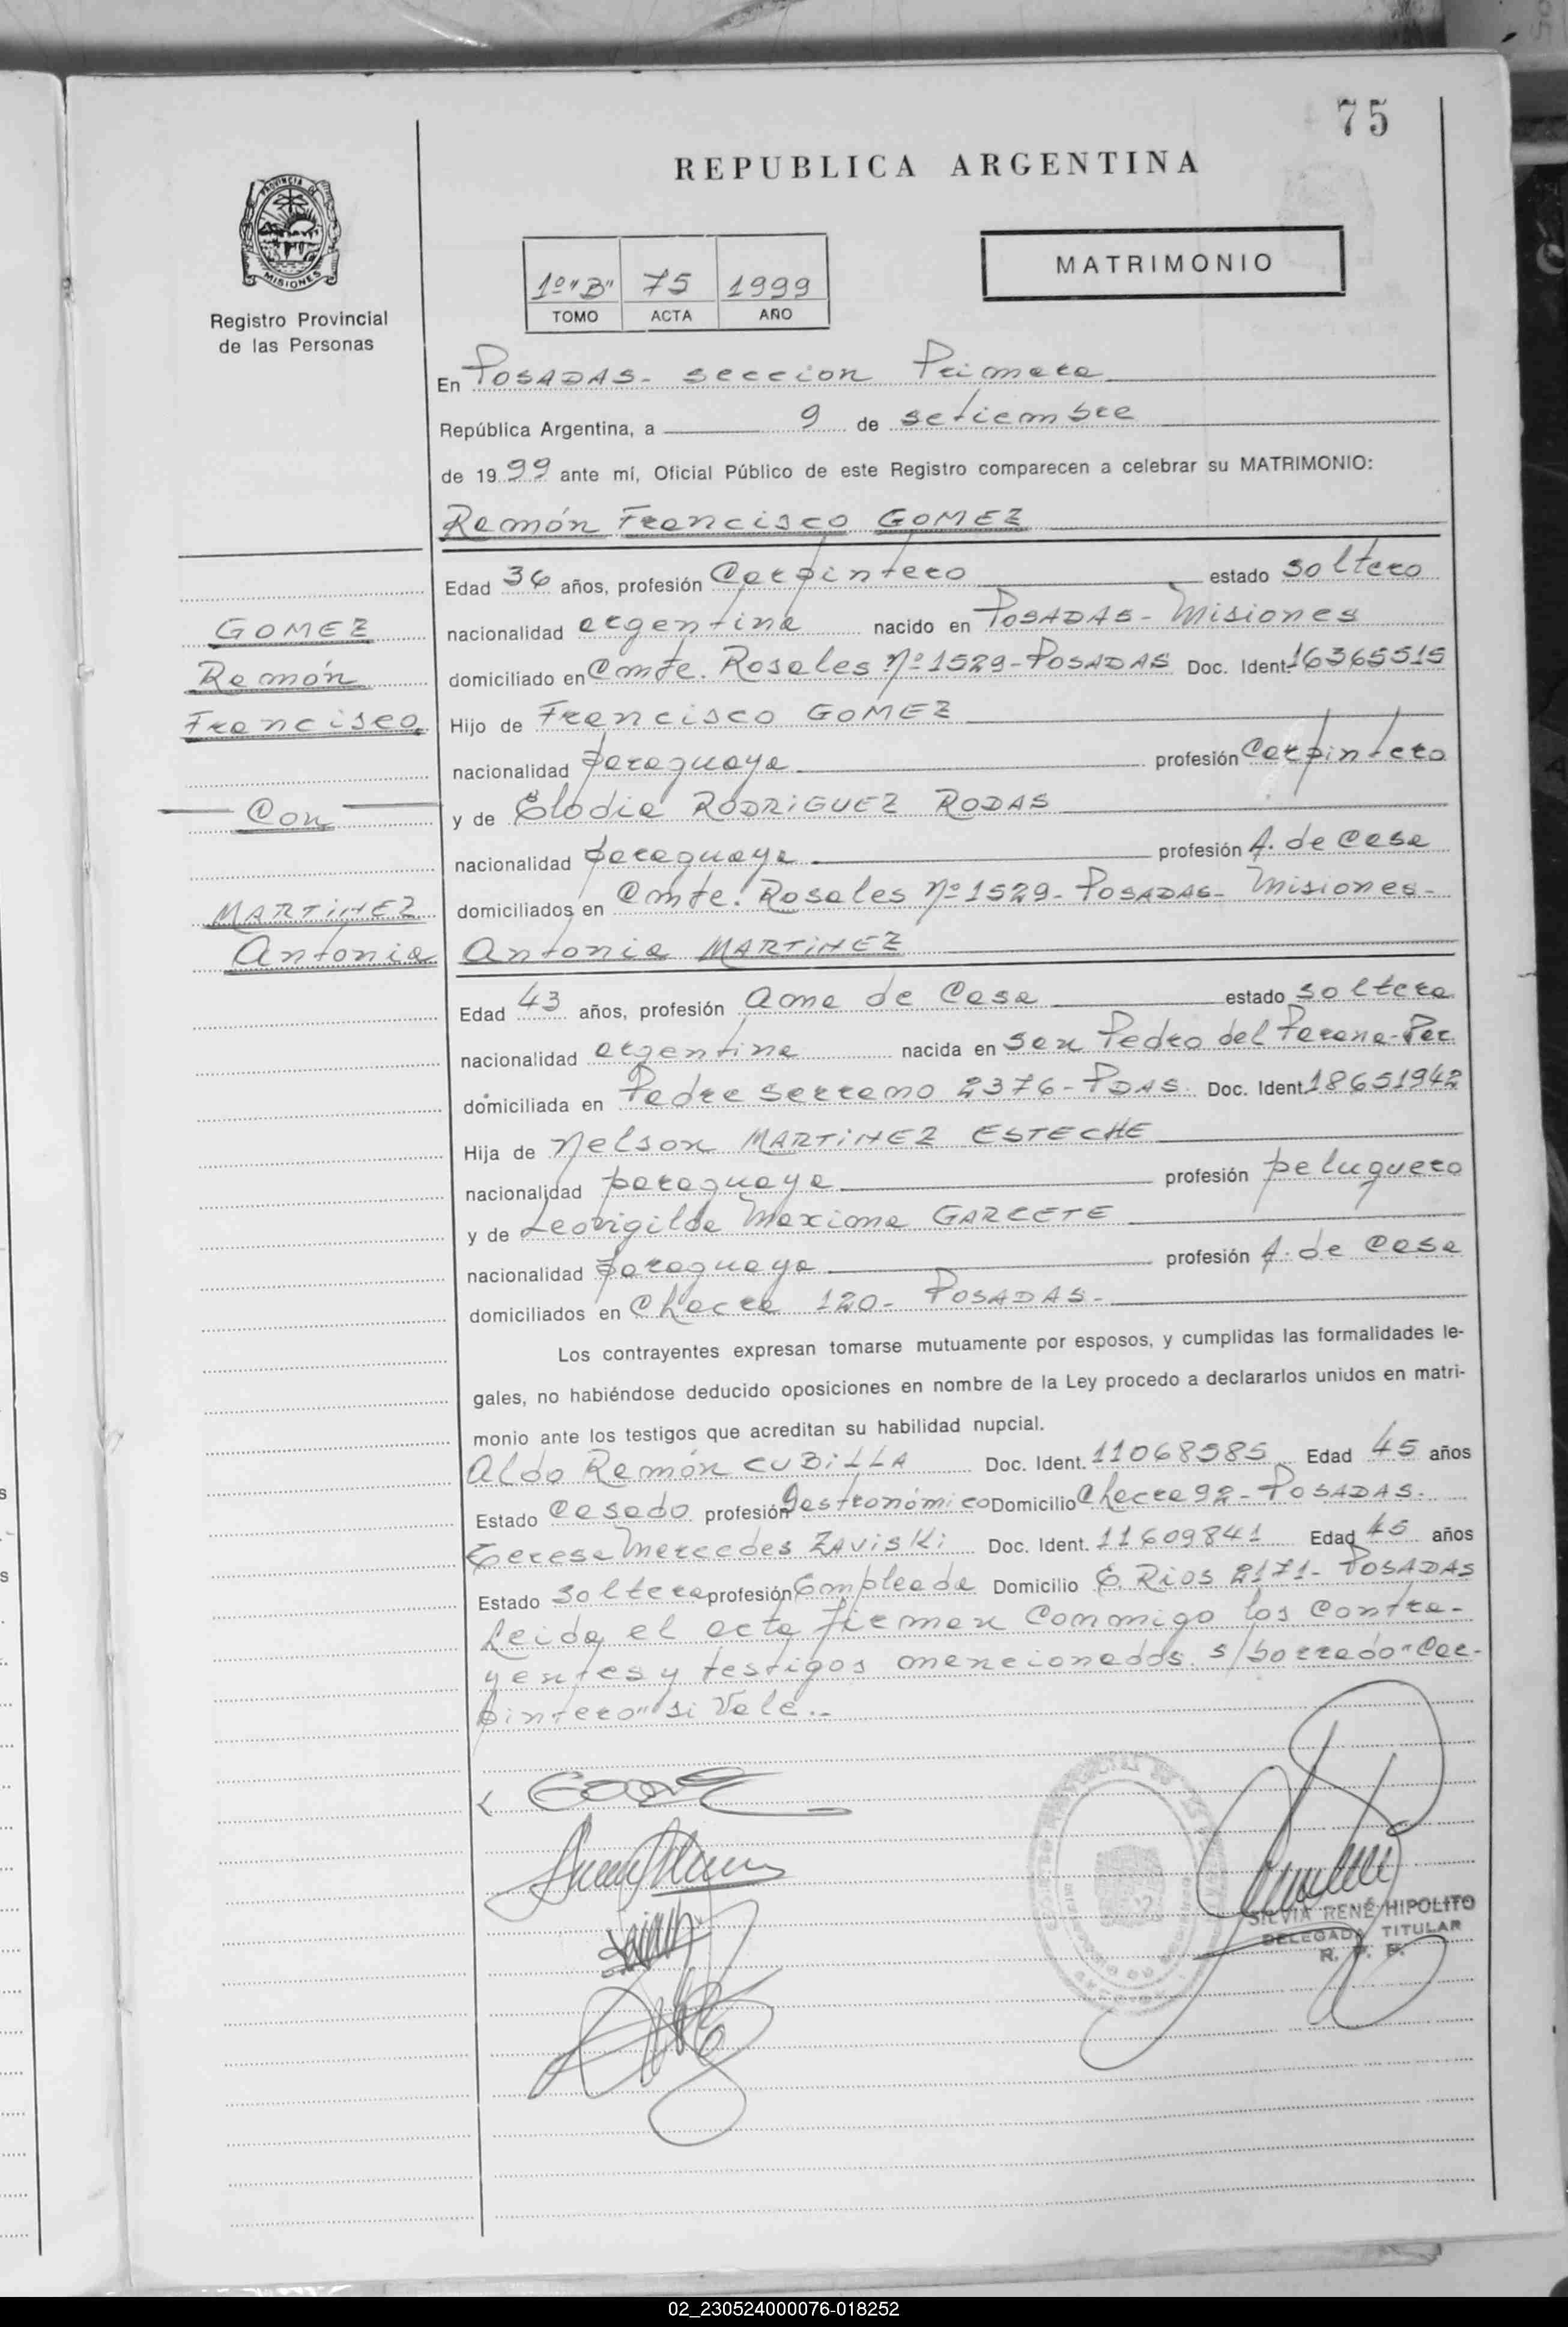 75
REPUBLICA ARGENTINA
PROVINCIA DE
MISIONES
Registro Provincial
de las Personas
1º "B" 75 1999
TOMO ACTA AÑO
MATRIMONIO
En POSADAS- seccion Primera
República Argentina, a 9 de setiembre
de 1999 ante mí, Oficial Público de este Registro comparecen a celebrar su MATRIMONIO:
Ramón Francisco GOMEZ
Edad 36 años, profesión Carpintero estado soltero
GOMEZ
nacionalidad argentina nacido en POSADAS- Misiones
Ramón
domiciliado en Cmte. Rosales Nº 1529-POSADAS Doc. Ident. 16365515
Francisco
Hijo de Francisco GOMEZ
nacionalidad paraguaya profesión Carpintero
Con
y de Elodia RODRIGUEZ RODAS
nacionalidad paraguaya profesión A. de Casa
MARTINEZ
domiciliados en Cmte. Rosales Nº 1529- POSADAS- Misiones-
Antonia
Antonia MARTINEZ
Edad 43 años, profesión Ama de Casa estado soltera
nacionalidad argentina nacida en San Pedro del Parana-Par.
domiciliada en Padre Serrano 2376- PDAS. Doc. Ident. 18651942
Hija de Nelson MARTINEZ ESTECHE
nacionalidad paraguaya profesión peluquero
y de Leovigilda Maxima GARCETE
nacionalidad paraguaya profesión A. de Casa
domiciliados en Chacra 120- POSADAS-
Los contrayentes expresan tomarse mutuamente por esposos, y cumplidas las formalidades le-
gales, no habiéndose deducido oposiciones en nombre de la Ley procedo a declararlos unidos en matri-
monio ante los testigos que acreditan su habilidad nupcial.
Aldo Ramón CUBILLA Doc. Ident. 11068585 Edad 45 años
Estado Casado profesión Gastronómico Domicilio Chacra 92- POSADAS.
Teresa Mercedes ZAVISKI Doc. Ident. 11609841 Edad 45 años
Estado soltera profesión Empleada Domicilio E. Rios 2171- POSADAS
Leida el acta firman conmigo los contra-
yentes y testigos mencionados. s/borrado "Car-
pintero" si Vale.-
SILVIA RENÉ HIPOLITO
DELEGADA TITULAR
R. P. P.
02_230524000076-018252